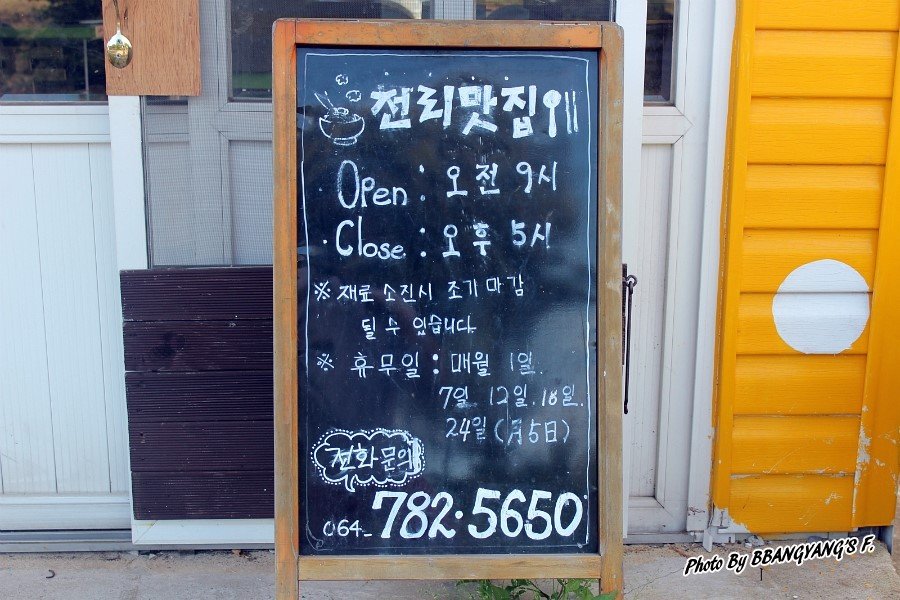 전리맛집
Open : 오전 9시
Close : 오후 5시
※ 재료 소진시 조기 마감
될 수 있습니다
※ 휴무일 : 매월 1일.
7일. 12일. 18일.
24일 (月5日)
전화문의
064-782·5650
Photo By BBANGYANG'S F.